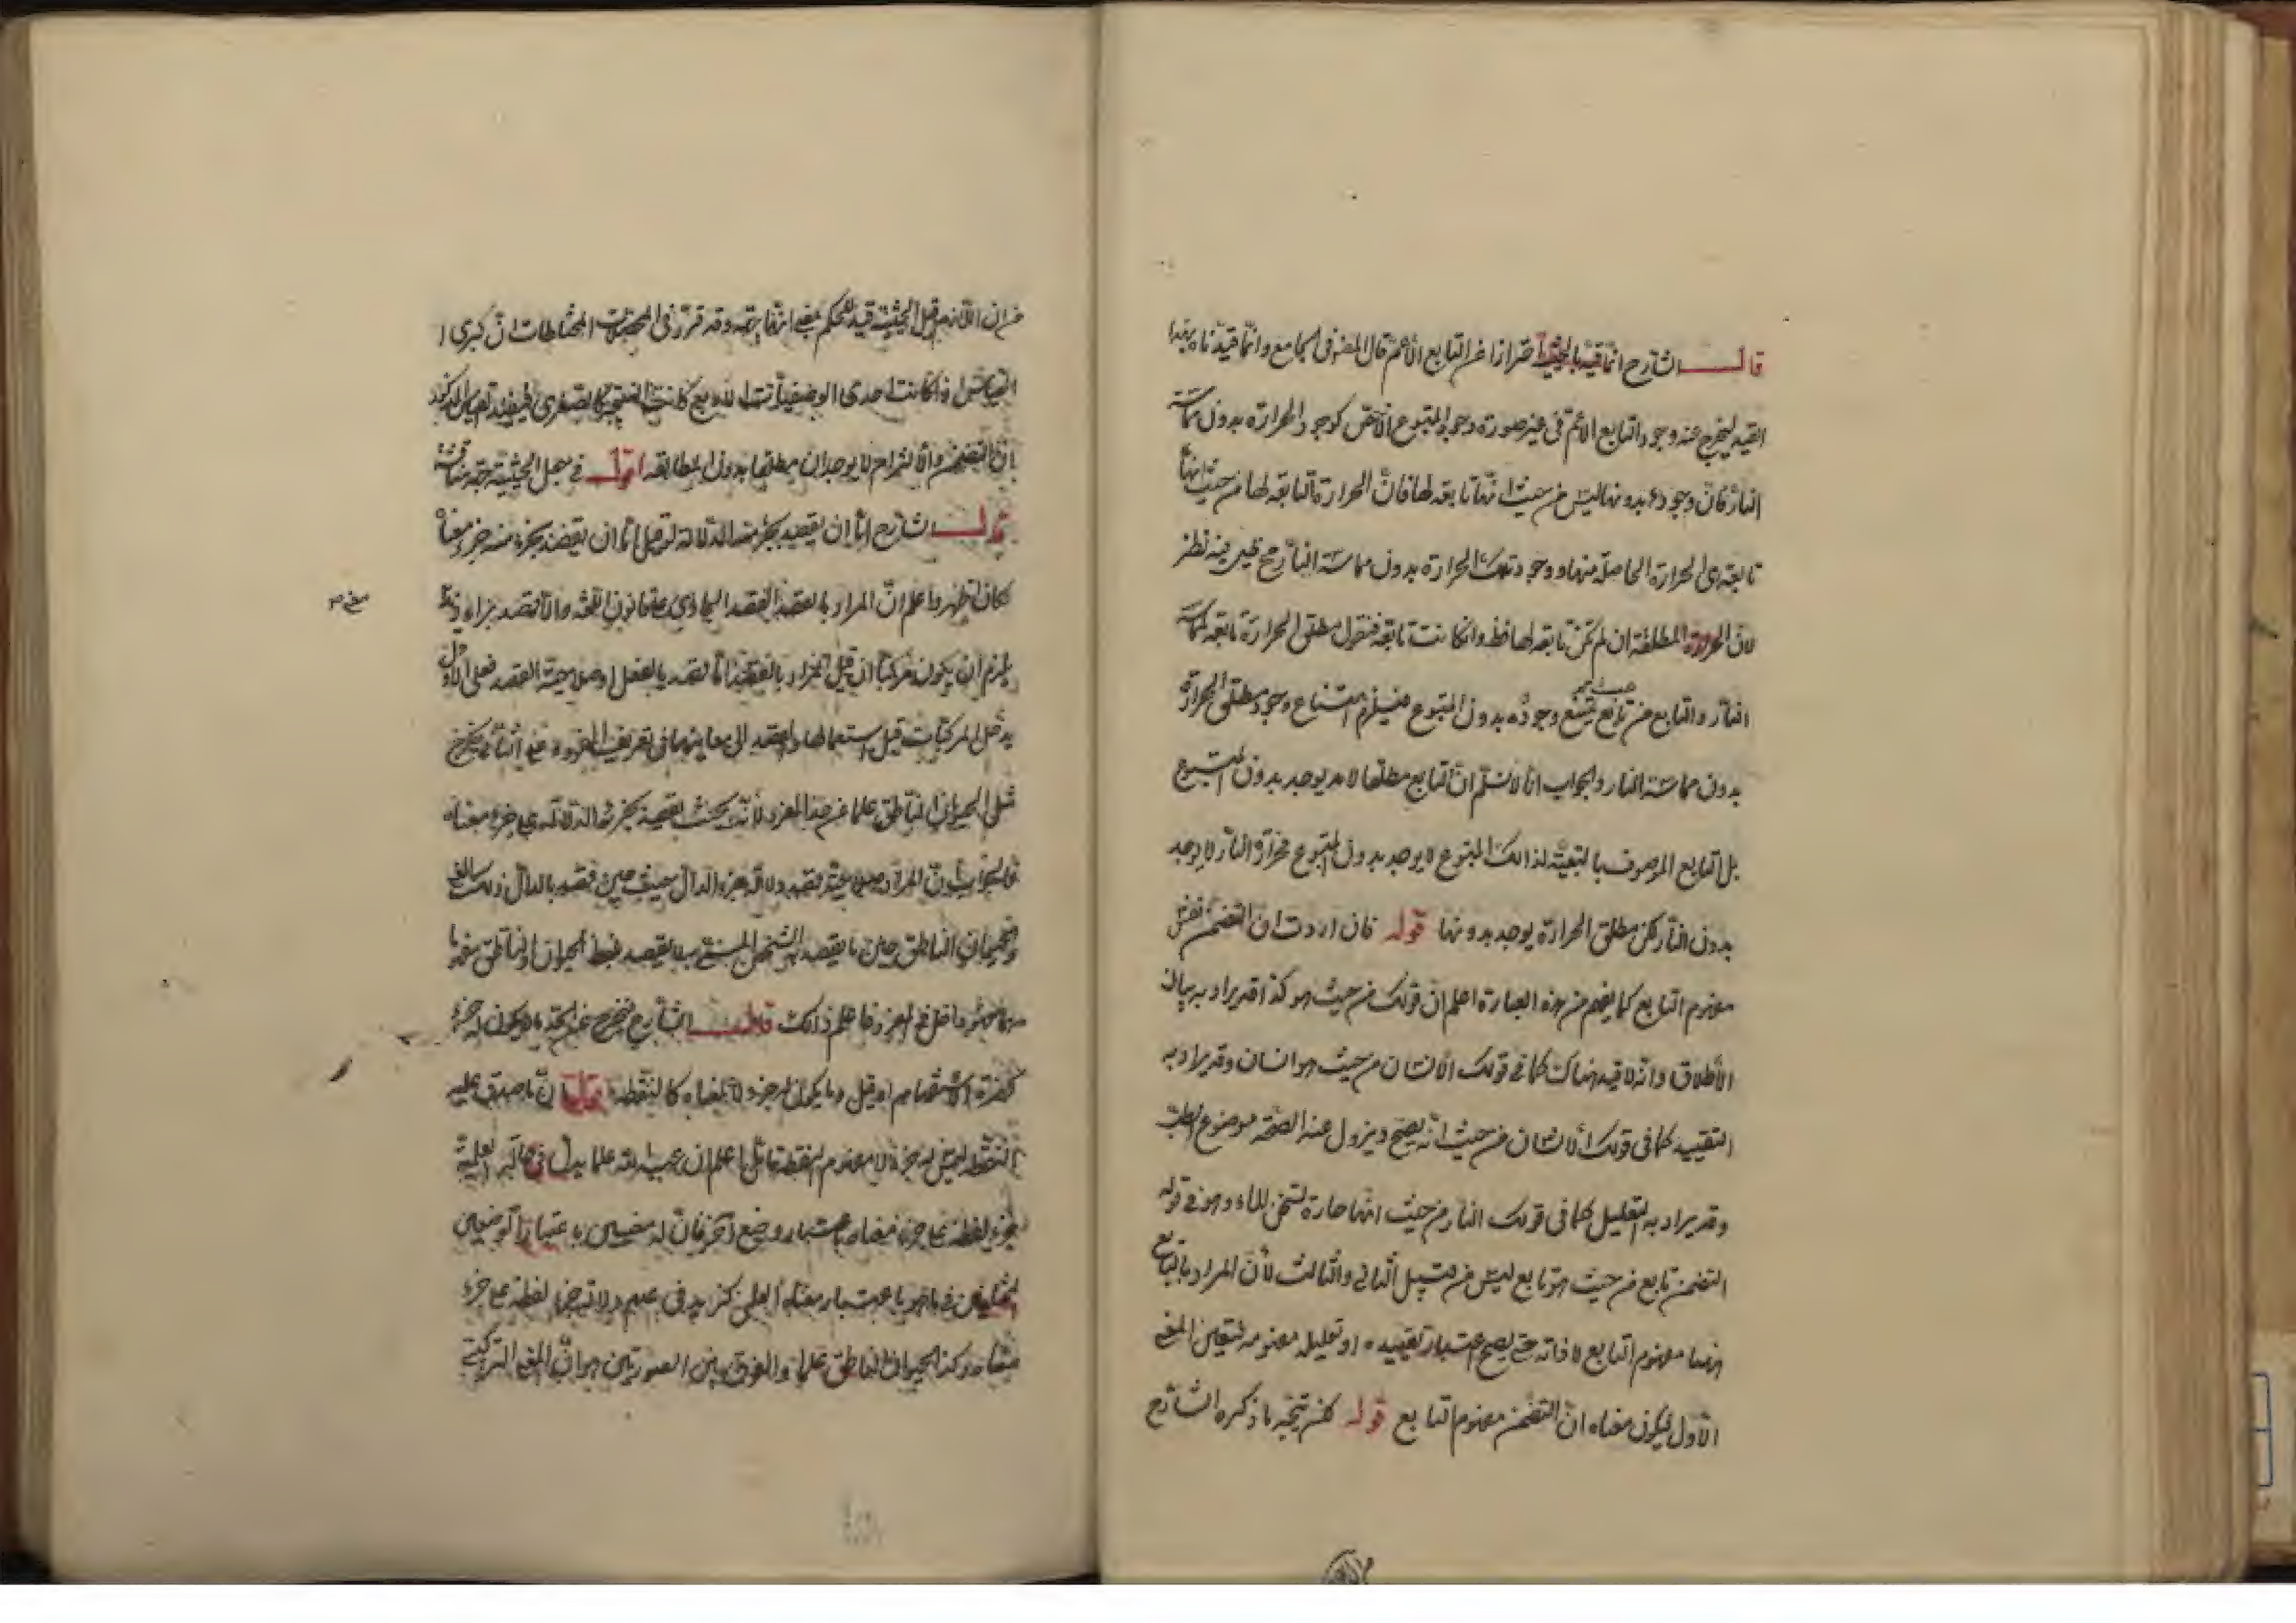 قال الشارح انما قيد بالحيثية احترازا عن التابع الأعم قال المصنف في الجامع وانما قيدناه بهذا
القيد ليخرج عنه وجود التابع الاعم في غير صورة وجود المتبوع الأخص كوجود الحرارة بدون مماسة
النار فان وجوده بدونها ليس من حيث انها تابعة لها فان الحرارة التابعة لها من حيث انها
تابعة هي الحرارة الحاصلة منها ووجود تلك الحرارة بدون مماسة النار مح فيه نظر
لان الحرارة المطلقة ان لم تكن تابعة لها فظ وان كانت تابعة فنقول مطلق الحرارة تابعة لمماسة
النار والتابع من حيث انه تابع يمتنع وجوده بدون المتبوع فيلزم امتناع وجود مطلق الحرارة
بدون مماسة النار والجواب انا لا نسلم ان التابع مطلقا لا يوجد بدون المتبوع
بل التابع الموصوف بالتبعية لذلك المتبوع لا يوجد بدون المتبوع فحرارة النار لا يوجد
بدون النار لكن مطلق الحرارة يوجد بدونها قوله فان اردت ان التضمن نفس
مفهوم التابع كما يفهم من هذه العبارة اعلم ان قولك من حيث هو كذا قد يراد به بيان
الأطلاق وانه لا قيد هناك كما في قولك الأنسان من حيث هو انسان وقد يراد به
التقييد كما في قولك الأنسان من حيث انه يصح ويزول عنه الصحة موضوع الطب
وقد يراد به التعليل كما في قولك النار من حيث انها حارة تسخن الماء وهو في قوله
التضمن تابع من حيث هو تابع ليس من قبيل الثاني والثالث لأن المراد بالتابع
ههنا مفهوم التابع لا ذاته حتى يصح اعتبار تقييده او تعليله بمفهومه فتعين المعنى
الأول ليكون معناه ان التضمن مفهوم التابع قوله لكن يتجه ما ذكره الشارح
من ان اللازم قيل الحيثية قيد للحكم وقد قرر في المختلطات ان كبرى
القياس اذا كانت احدى الوصفيات الأربع كانت النتيجة كالصغرى
ان التضمن والألتزام لا يوجدان مطلقا بدون المطابقة اقول في جعل الحيثية جهة مناقشة
قال الشارح اما ان يقصد بجزء منه الدلالة لو قيل اما ان يقصد بجزء منه جزء معناه
لكان اظهر واعلم ان المراد بالقصد القصد الجاري على قانون اللغة والا
معنى صح
يلزم ان يكون مركبا ان قيل المراد بالقصد اما القصد بالفعل او صلاحية القصد فعلى الأول
يدخل المركبات قبل استعمالها والقصد الى معانيها في تعريف المفرد وعلى الثاني يخرج
مثل الحيوان الناطق علما عن حد المفرد لأنه بحيث يقصد بجزئه الدلالة على جزء معناه
والجواب ان المراد صلاحية قصد دلالة جزء الدال حين قصد بالدال
والحيوان الناطق حين ما يقصد به الشخص المسمى به لا يقصد بلفظ الحيوان والناطق مفهوما
فهو داخل في المفرد فاعلم ذلك قال الشارح فيخرج عن الحد ما لا يكون له جزء
كهمزة الأستفهام او قيل وما يكون له جزء لا لمعناه كالنقطة قلنا ان ما صدق عليه
النقطة ليس له جزء لا مفهوم النقطة تأمل اعلم ان عبد الله علما يدل في حالة العلمية
جزء لفظه على جزء معناه باعتبار وضع آخر فان له معنيين باعتبار الوضعين
باعتبار معناه العلمي كزيد في عدم دلالة جزء لفظه على جزء
معناه وكذا الحيوان الناطق علما والفرق بين الصورتين هو ان المعنى التركيبي